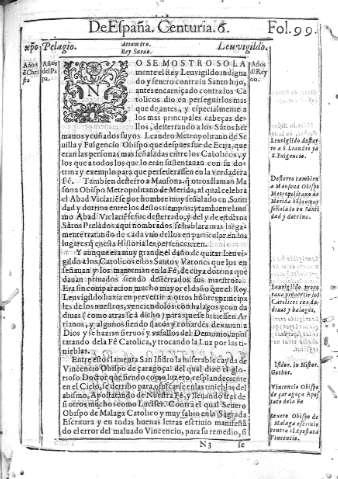 De España. Centuria. 6. Fol. 99.
xpo Pelagio. Rey Sueuo. Leuvigildo.
Años de Christo
Años del Papa.
Años del Rey
NO SE MOSTRO SOLA
mente el Rey Leuvigildo indigna
do y seuero contra su Santo hijo,
antes encarniçado contra los Ca
tolicos dio en perseguirlos mas
que de antes, y especialmente a
los mas principales cabeças de
llos, desterrando a los Santos her
manos y cuñados suyos Leandro Metropolitano de Se
uilla y Fulgencio Obispo que despues fue de Ecija, que
eran las personas mas señaladas entre los Catolicos, y
los que a todos los que lo eran sustentauan con su do
trina y exemplo para que perseuerassen en la verdadera
Fè. Tambien desterro a Mausona, que otros llaman Ma
sona Obispo Metropolitano de Merida, al qual celebra
el Abad Viclariense por hombre muy señalado en Santi
dad y dotrina
Abad Viclariense desterrado, y del y de estotros
Santos Prelados aqui nombrados se hablara mas larga
mente tratando de cada uno dellos en particular en los
lugares que en esta Historia les pertenecieren.
Y aunque era muy grande el daño de quitar Leuvi
gildo a los Catolicos estos Santos Varones que los en
señauan y los mantenian en la Fè, de cuya dotrina que
dauan priuados siendo desterrados sus maestros.
Era sin comparacion mucho mayor el daño que el Rey
Leuvigildo hazia en peruertir a otros hombres principa
les de los nuestros, venciendolos con halagos y con da
diuas (como atras se à dicho) para que se hiziessen Ar
rianos, y algunos siendo flacos y couardes dexauan a
Dios y se hazian sieruos y vasallos del Demonio, apos
tatando de la Fè Catolica, y trocando la Luz por las ti
nieblas.
Entre estos lamenta San Isidro la miserable cayda de
Vincencio Obispo de Çaragoça del qual dize el glo
rioso Doctor que siendo como luzero, resplandeciente
en el Cielo, se derribo para obscurecer en las tinieblas del
abismo, Apostatando de Nuestra Fè, y leuando tras de
si otros muchos como Lucifer. Contra el qual Seuero
Obispo de Malaga Catolico y muy sabio en la Sagrada
Escritura y en todas buenas letras escriuio manifestã
do el error del maluado Vincencio, para su remedio, si
N 3 se
Leuvigildo destier
ro a S. Leandro y a
S. Fulgencio.
Desterro tambien
a Mausona Obispo
Metropolitano de
Merida Varon
señalado en santi
dad y dotrina.
Leuvigildo procu
raua peruertir los
Catolicos con da
diuas y halagos.
Isidor. in Histor.
Gothor.
Vincencio Obispo
de Çaragoça apos
tato de la Fè
Seuero Obispo de
Malaga escriuio
contra el Apostata
Vincencio.